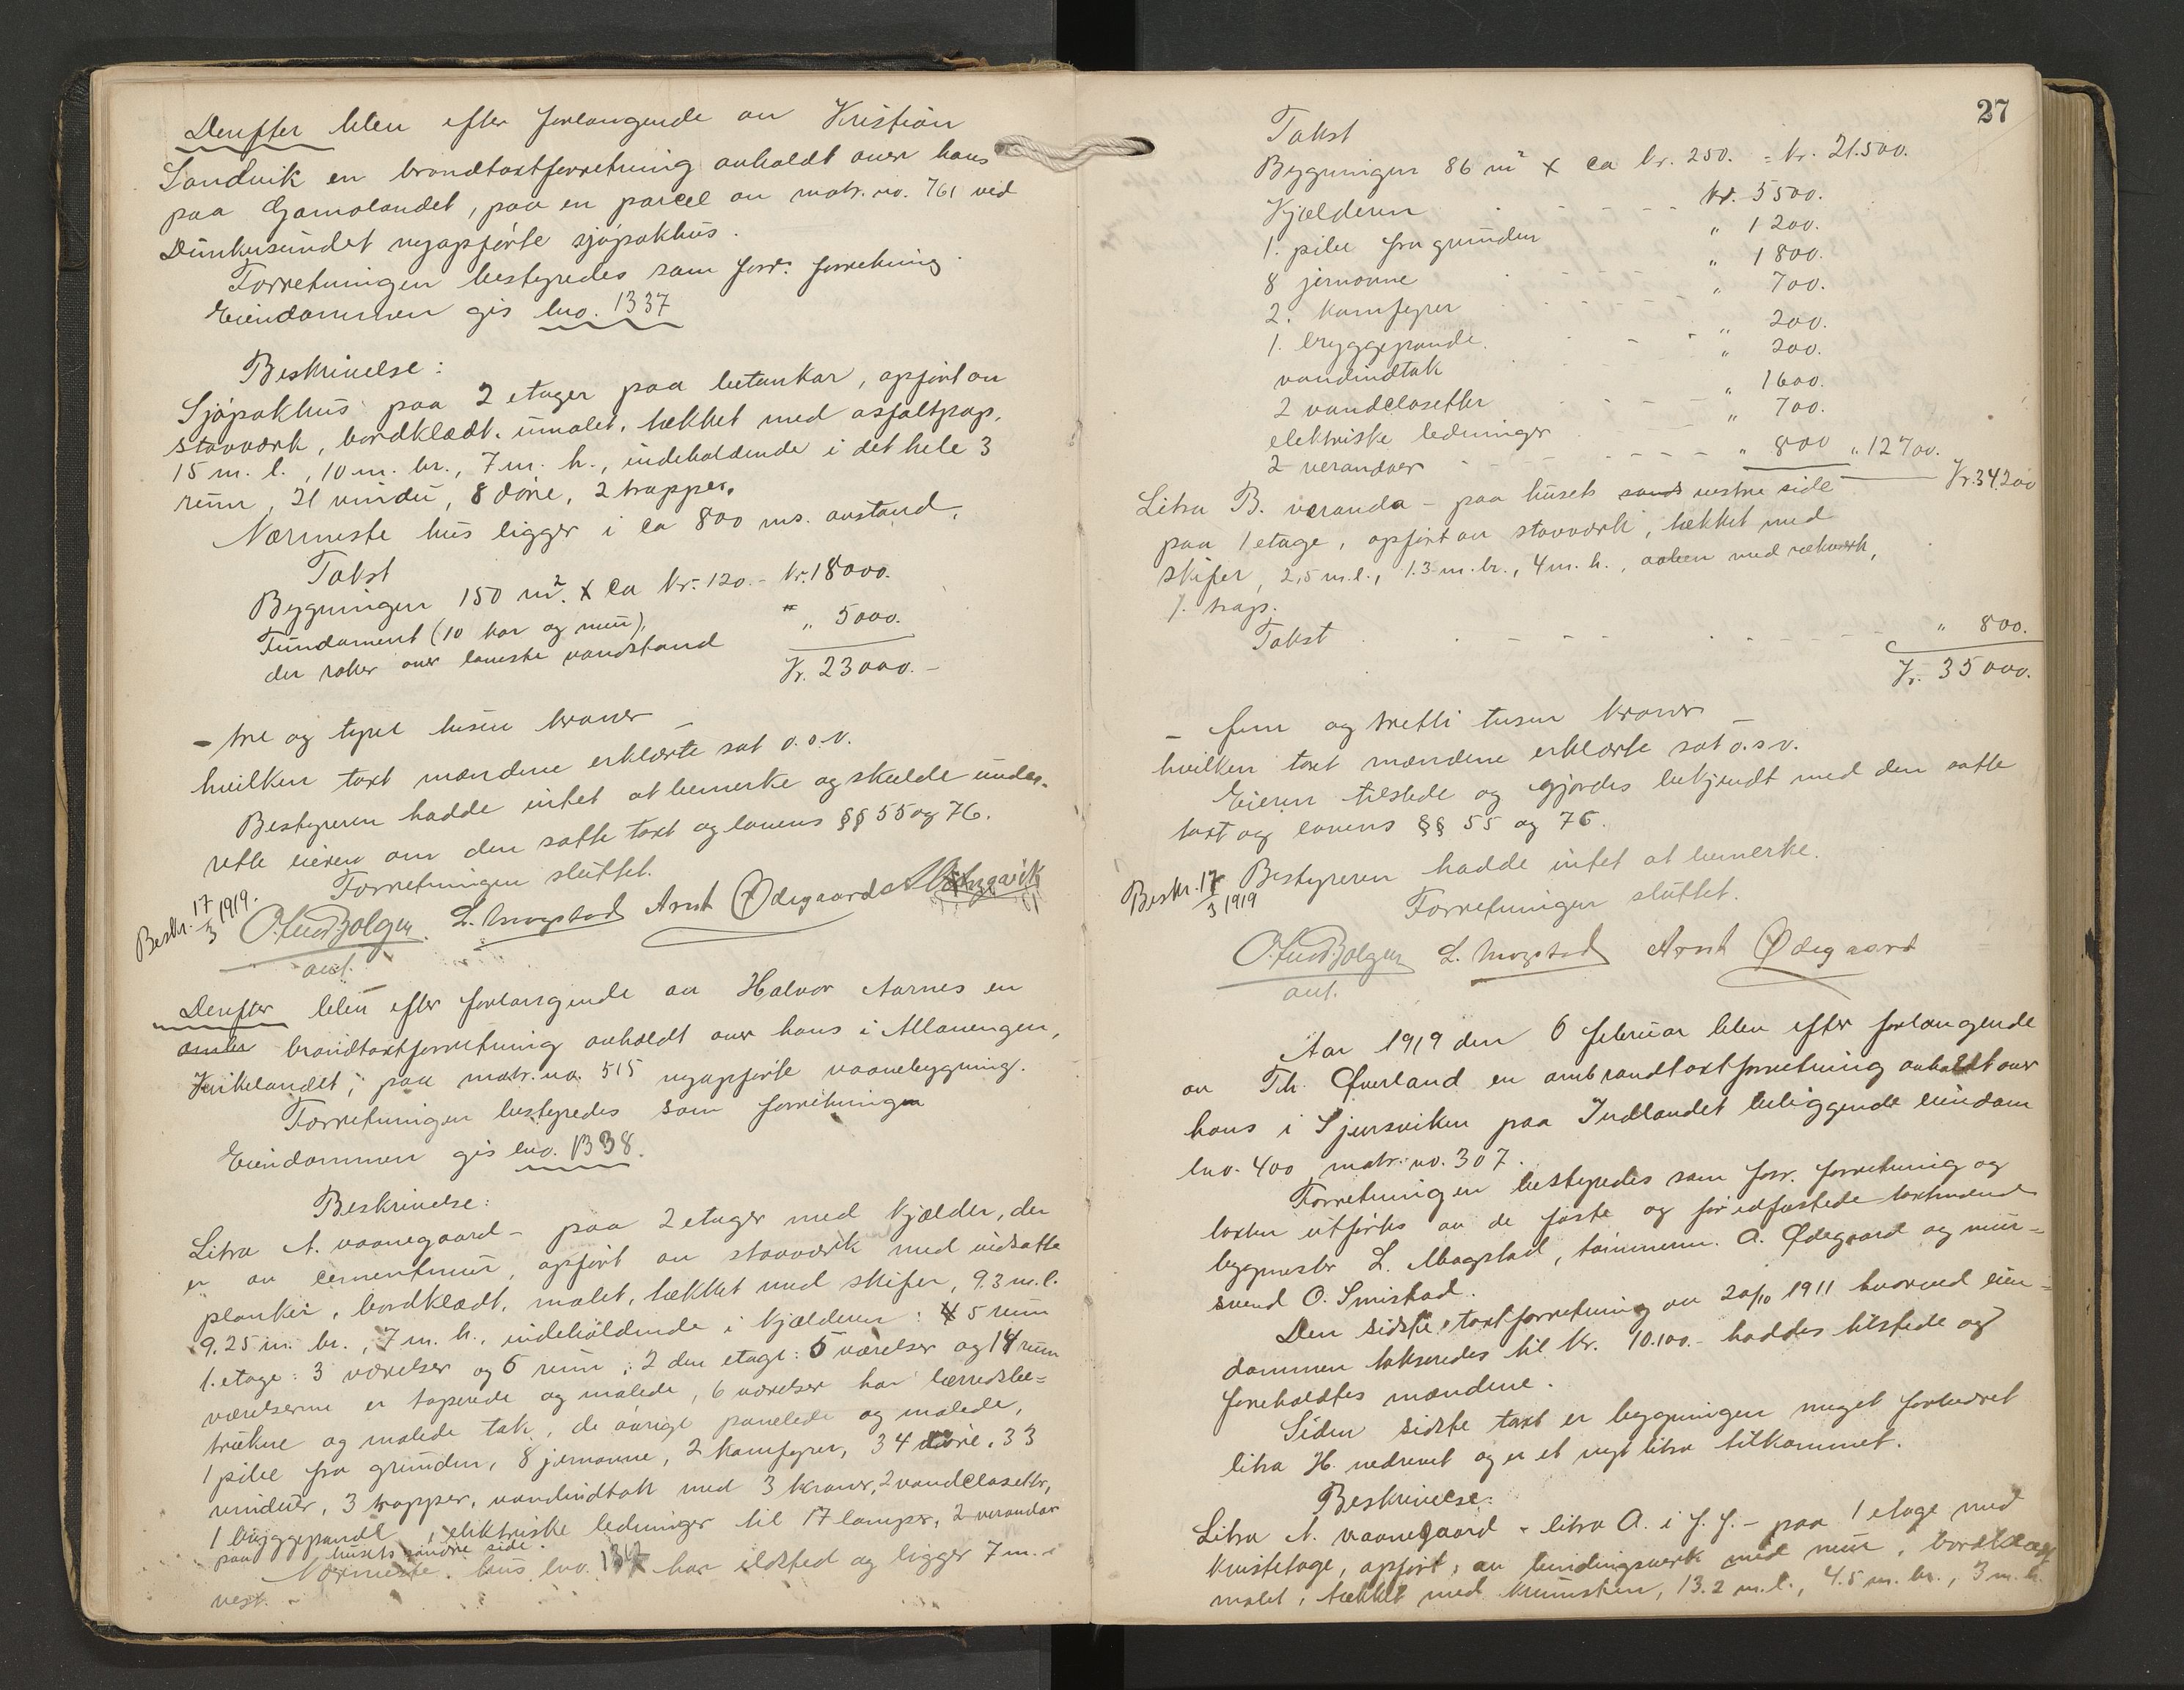 Derefter blev efter forlangende av Kristian
Sandvik en brandtaxtforretning avholdt over hans
paa Gomalandet, paa en parcel av matr. no. 761 ved
Dunkersundet nyopførte sjøpakhus.
Forretningen bestyredes som forr. forretning.
Eiendommen gis bno. 1337
Beskrivelse:
Sjøpakhus paa 2 etager paa betonkar, opført av
stavverk, bordklædt, umalet, tækket med asfaltpap,
15 m. l., 10 m. br., 7 m. h., indeholdende i det hele 3
rum, 21 vindu, 8 døre, 2 trapper.
Nærmeste hus ligger i ca 800 ms. avstand.
Takst
Bygningen 150 m². x ca kr. 120.- kr. 18000.
Fundament (10 kar og mur), " 5000.
der raker over laveste vandstand
Kr. 23000.-
- tre og tyve tusen kroner -
hvilken taxt mændene erklærte sat o.s.v.
Bestyreren hadde intet at bemerke og skulde under-
rette eieren om den satte taxt og lovens §§ 55 og 76.
Forretningen sluttet.
Beskr. 17/3 1919.
L. Magstad Arnt Ødegaard
aut.
Derefter blev efter forlangende av Halvor Aarnes en
brandtaxtforretning avholdt over hans i Allanengen,
Kirkelandet, paa matr. no. 515 nyopførte vaanebygning.
Forretningen bestyredes som forretningen
Eiendommen gis bno. 1338.
Beskrivelse:
Litra A. vaanegaard - paa 2 etager med kjælder, der
er av cementmur, opført av stavverk med indsatte
planker, bordklædt, malet, tækket med skifer, 9.3 m. l.
9.25 m. br., 7 m. h., indeholdende i kjælderen: 5 rum
1. etage: 3 værelser og 5 rum, 2 den etage: 5 værelser og 4 rum
værelserne er taperede og malede, 6 værelser har lærredsbe-
trukne og malede tak, de øvrige panelede og malede,
1 pibe fra grunden, 8 jernovne, 2 komfyrer, 34 døre, 33
vinduer, 3 trapper, vandindtak med 3 kraner, 2 vandclosetter,
1 bryggepande, elektriske ledninger til 17 lamper, 2 verandaer
paa husets søndre side.
Nærmeste hus bno. har ildsted og ligger 7 m. i
vest.
27
Takst
Bygningen 86 m² x ca kr. 250. = kr. 21.500.
Kjælderen - - - - kr. 5500.
1. pibe fra grunden " 1200.
8 jernovne " 1800.
2. komfyrer - - - " 700.
1. bryggepande. - - " 200.
vandindtak " 200.
2 vandclosetter - - - " 1600.
elektriske ledninger " 700.
2 verandaer - - - - - " 800 " 12700.
Kr. 34200
Litra B. veranda - paa husets vestre side
paa 1 etage, opført av stavverk, tækket med
skifer, 2,5 m. l., 1.3 m. br., 4 m. h., aaben med rækverk,
1. trap.
Takst - - - - - - " 800.
Kr. 35000.
- fem og tretti tusen kroner -
hvilken taxt mændene erklærte sat o.s.v.
Eieren tilstede og gjordes bekjendt med den satte
taxt og lovens §§ 55 og 76.
Beskr. 17/3 1919
Bestyreren hadde intet at bemerke.
Forretningen sluttet.
L. Magstad Arnt Ødegaard
aut.
Aar 1919 den 6 februar blev efter forlangende
av Th. Øverland en ombrandtaxtforretning avholdt over
hans i Sjursviken paa Indlandet beliggende eiendom
bno. 400 matr. no. 307.
Forretningen bestyredes som forr. forretning og
taxten utførtes av de faste og før edfæstede taxtmænd
byggmester L. Magstad, tømmerm. A. Ødegaard og mur-
svend O. Smistad.
Den sidste taxtforretning av 20/10 1911 hvorved eien-
dommen takseredes til kr. 10.100.- haddes tilstede og
foreholdtes mændene.
Siden sidste taxt er bygningen meget forbedret
litra H. nedrevet og er et nyt litra tilkommet.
Beskrivelse:
Litra A. vaanegaard - litra A. i f. f. - paa 1 etage med
kvistetage, opført av bindingsverk med mur, bordklædt
malet, tækket med krumsten, 13.2 m. l., 4.5 m. br., 3 m. h.